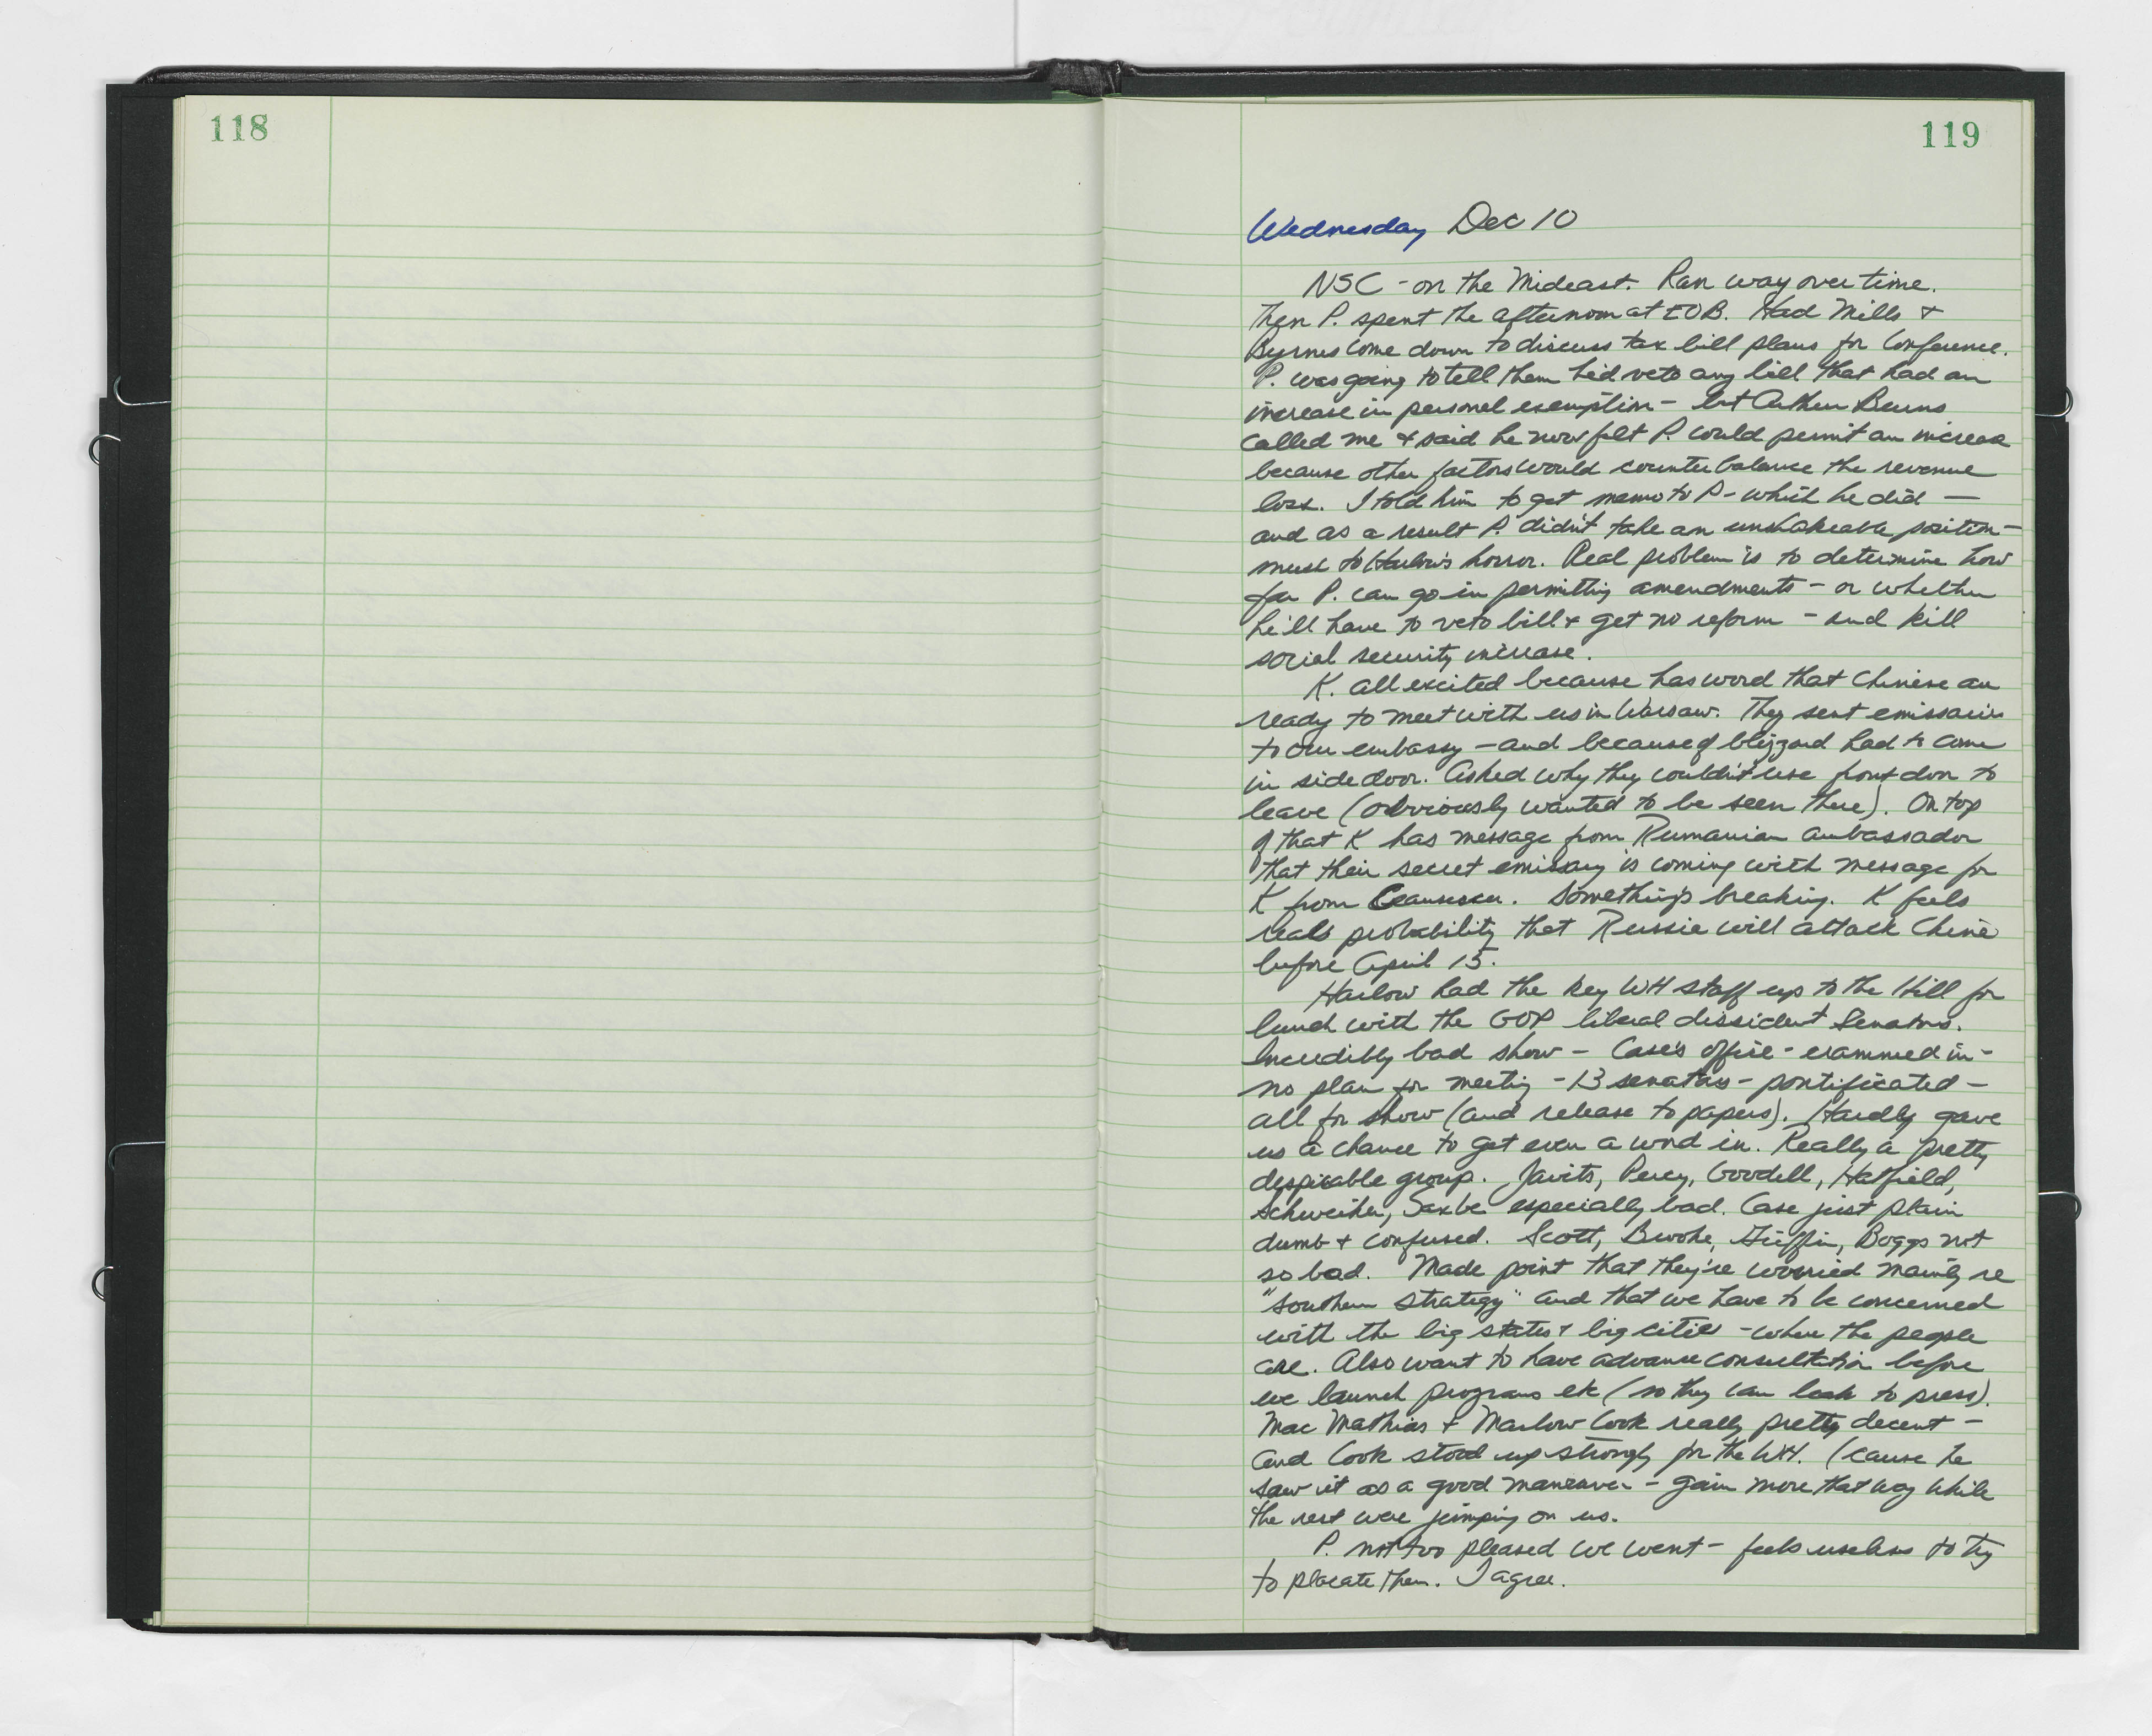 118
119
Wednesday Dec 10
NSC - on the Mideast. Ran way over time.
Then P. spent the afternoon at EOB. Had Mills +
Byrnes come down to discuss tax bill plans for Conference.
P. was going to tell them he'd veto any bill that had an
increase in personal exemption - but Arthur Burns
called me + said he now felt P. could permit an increase
because other factors would counterbalance the revenue
loss. I told him to get memo to P - which he did -
and as a result P. didn't take an unshakeable position -
much to Harlow's horror. Real problem is to determine how
far P. can go in permitting amendments - or whether
he'll have to veto bill + get no reform - and kill
social security increase.
K. all excited because has word that Chinese are
ready to meet with us in Warsaw. They sent emissaries
to our embassy - and because of blizzard had to come
in side door. Asked why they couldn't use front door to
leave (obviously wanted to be seen there). On top
of that K has message from Rumanian ambassador
that their secret emissary is coming with message for
K from Ceausescu. Something's breaking. K feels
real probability that Russia will attack China
before April 15.
Harlow had the key WH staff up to the Hill for
lunch with the GOP liberal dissident Senators.
Incredibly bad show - Case's office - crammed in -
no plan for meeting - 13 senators - pontificated -
all for show (and release to papers). Hardly gave
us a chance to get even a word in. Really a pretty
despicable group. Javits, Percy, Goodell, Hatfield,
Schweiker, Saxbe especially bad. Case just plain
dumb + confused. Scott, Brooke, Griffin, Boggs not
so bad. Made point that they're worried mainly re
"Southern Strategy" and that we have to be concerned
with the big states + big cities - where the people
are. Also want to have advance consultation before
we launch programs etc (so they can leak to press).
Mac Mathias + Marlow Cook really pretty decent -
and Cook stood up strongly for the WH. (cause he
saw it as a good maneuver - gain more that way while
the rest were jumping on us.
P. not too pleased we went - feels useless to try
to placate them. I agree.